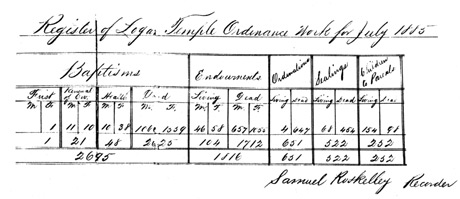 Register of Logan Temple Ordinance Work for July 1885
Baptisms Endowments Ordinations Sealings Children to Parents
First Renewal of Cov. Health Dead Living Dead Living Dead Living Dead Living Dead
M. F. M. F. M. F. M. F. M. F. M. F.
1 11 10 10 38 1066 1559 46 58 657 1055 4 647 68 454 154 98
1 21 48 2625 104 1712 651 522 252
2695 1816 651 522 252
Samuel Roskelley Recorder